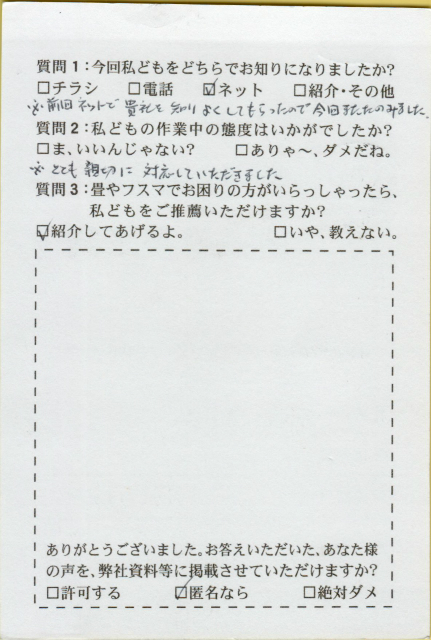 質問1:今回私どもをどちらでお知りになりましたか?
□チラシ □電話 ☑ネット □紹介・その他
※前回ネットで貴社を知りよくしてもらったので今回またたのみました。
質問2:私どもの作業中の態度はいかがでしたか?
□ま、いいんじゃない? □ありゃ〜、ダメだね。
※とても親切に対応していただきました
質問3:畳やフスマでお困りの方がいらっしゃったら、
私どもをご推薦いただけますか?
☑紹介してあげるよ。 □いや、教えない。
ありがとうございました。お答えいただいた、あなた様
の声を、弊社資料等に掲載させていただけますか?
□許可する ☑匿名なら □絶対ダメ